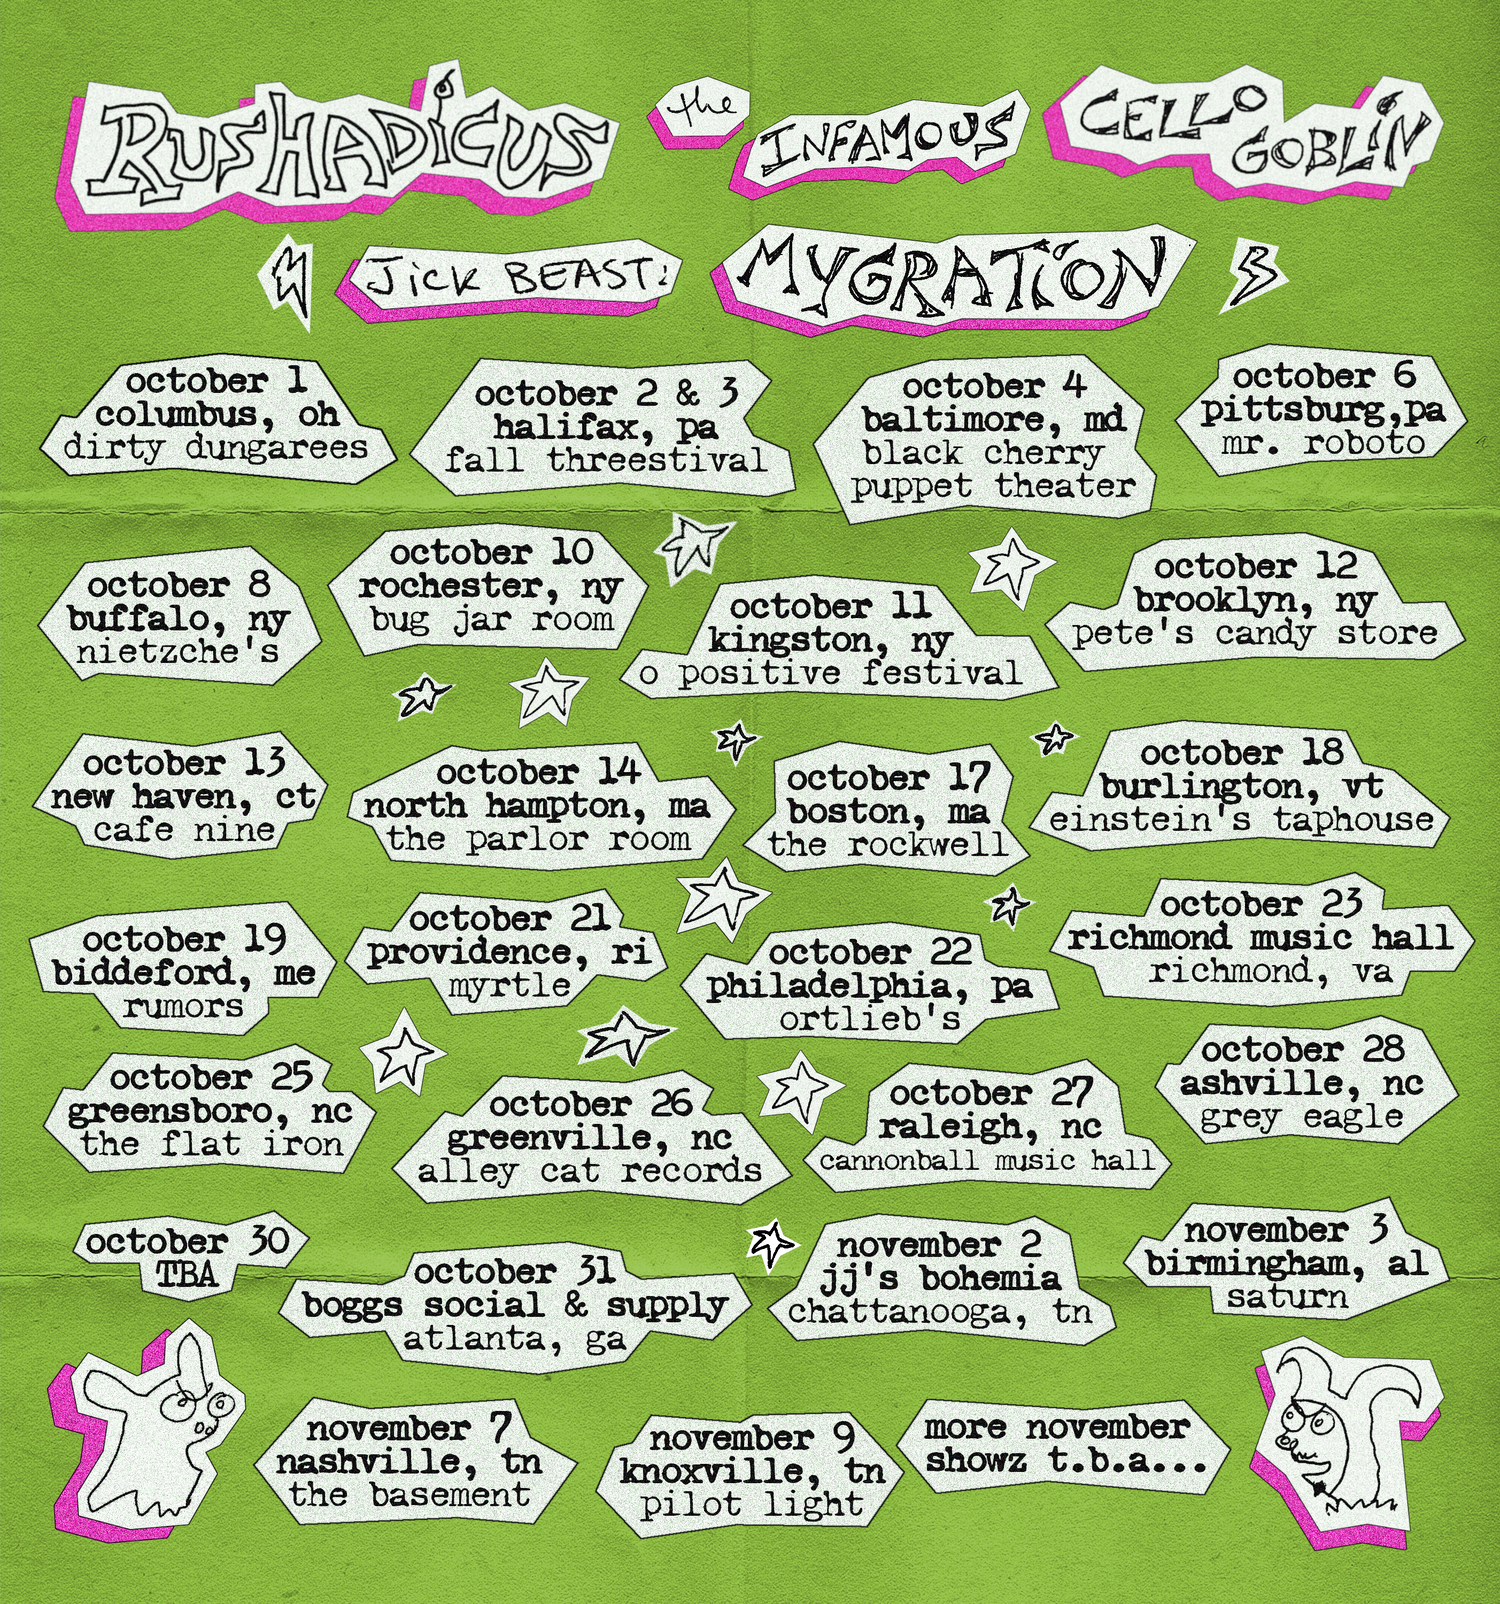 RUSHADiCUS
the
INFAMOUS
CELLO
GOBLiN
JiCK BEAST:
MYGRATiON
october 1
columbus, oh
dirty dungarees
october 2 & 3
halifax, pa
fall threestival
october 4
baltimore, md
black cherry
puppet theater
october 6
pittsburg,pa
mr. roboto
october 8
buffalo, ny
nietzche's
october 10
rochester, ny
bug jar room
october 11
kingston, ny
o positive festival
october 12
brooklyn, ny
pete's candy store
october 13
new haven, ct
cafe nine
october 14
north hampton, ma
the parlor room
october 17
boston, ma
the rockwell
october 18
burlington, vt
einstein's taphouse
october 19
biddeford, me
rumors
october 21
providence, ri
myrtle
october 22
philadelphia, pa
ortlieb's
october 23
richmond music hall
richmond, va
october 25
greensboro, nc
the flat iron
october 26
greenville, nc
alley cat records
october 27
raleigh, nc
cannonball music hall
october 28
ashville, nc
grey eagle
october 30
TBA
october 31
boggs social & supply
atlanta, ga
november 2
jj's bohemia
chattanooga, tn
november 3
birmingham, al
saturn
november 7
nashville, tn
the basement
november 9
knoxville, tn
pilot light
more november
showz t.b.a...